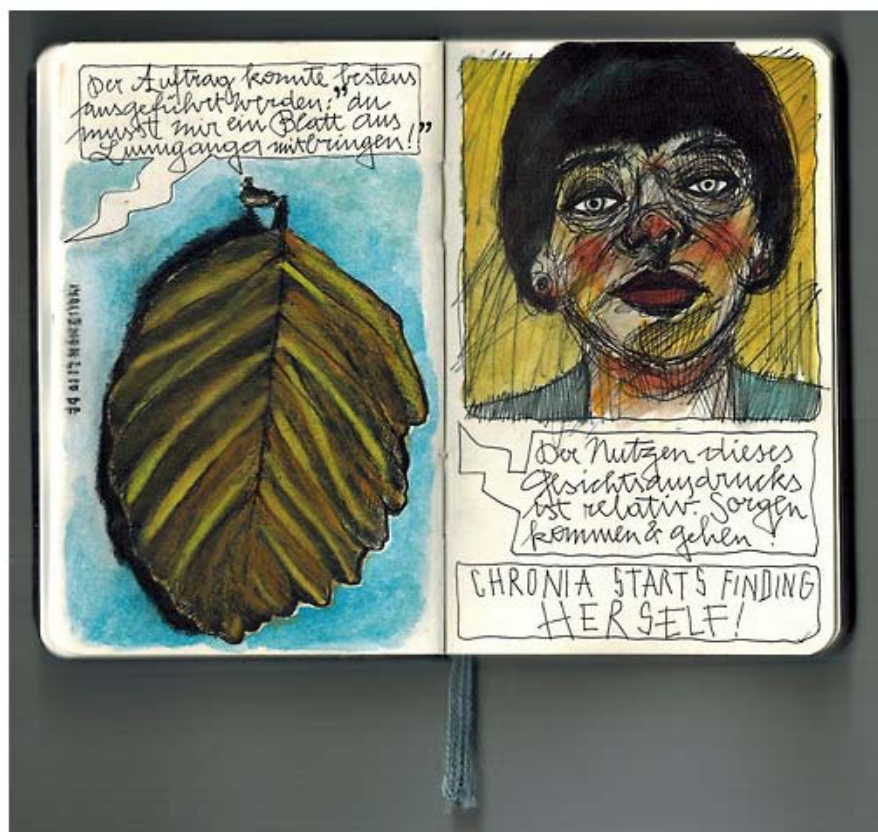 Der Auftrag konnte bestens
ausgeführt werden: "du
musst mir ein Blatt aus
mitbringen!"
Der Nutzen dieses
Gesichtsausdrucks
ist relativ. Sorgen
kommen & gehen!
CHRONIA STARTS FINDING
HERSELF!